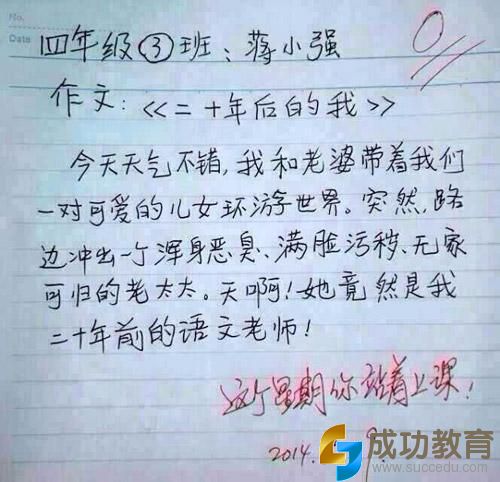 No.
Date
四年级③班：蒋小强
0
作文：《二十年后的我》
今天天气不错，我和老婆带着我们
一对可爱的儿女环游世界。突然，路
边冲出一个浑身恶臭、满脸污秽、无家
可归的老太太。天啊！她竟然是我
二十年前的语文老师！
这个星期你站着上课！
2014. 9.
成功教育
www.succedu.com